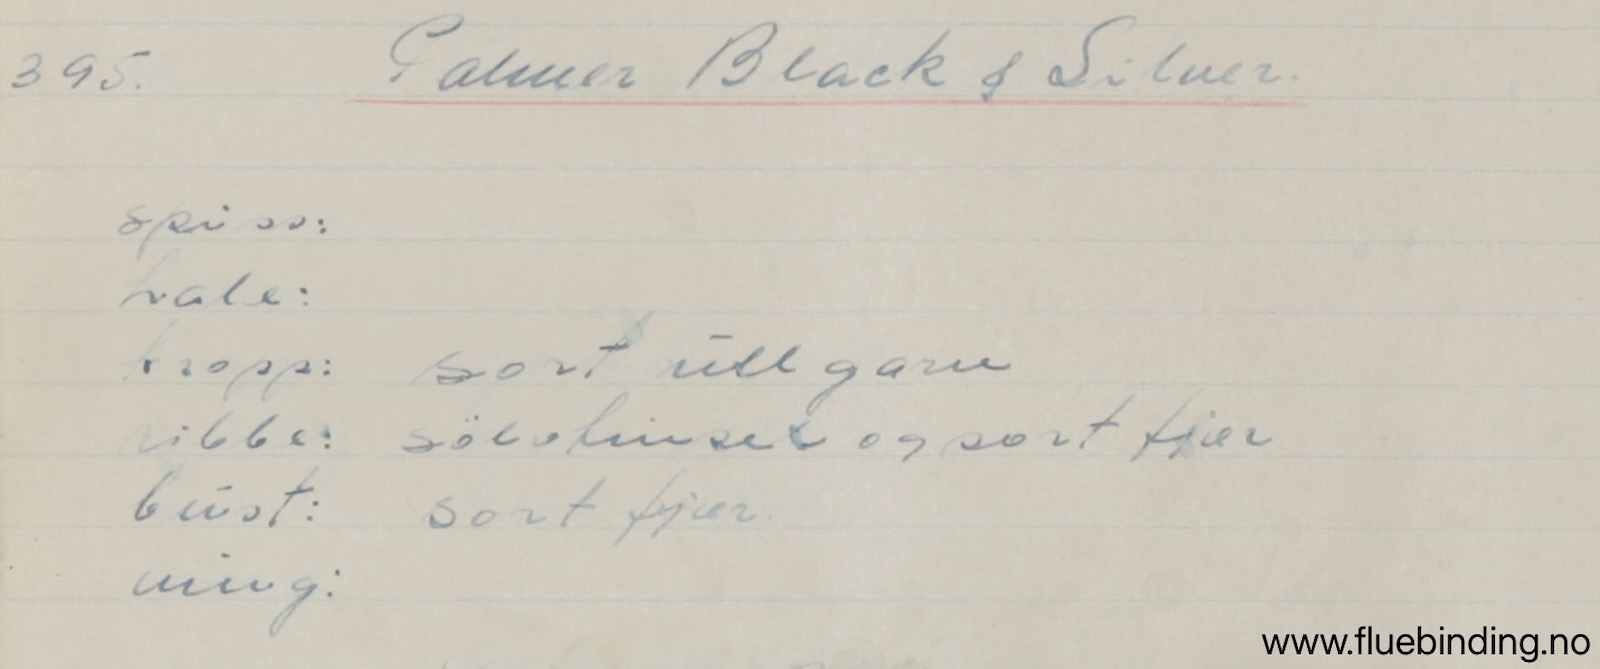 395. Palmer Black & Silver.
spiss:
hale:
kropp: sort ullgarn
ribbe: sölvtinsel og sort fjær
bust: sort fjær.
ving:
www.fluebinding.no